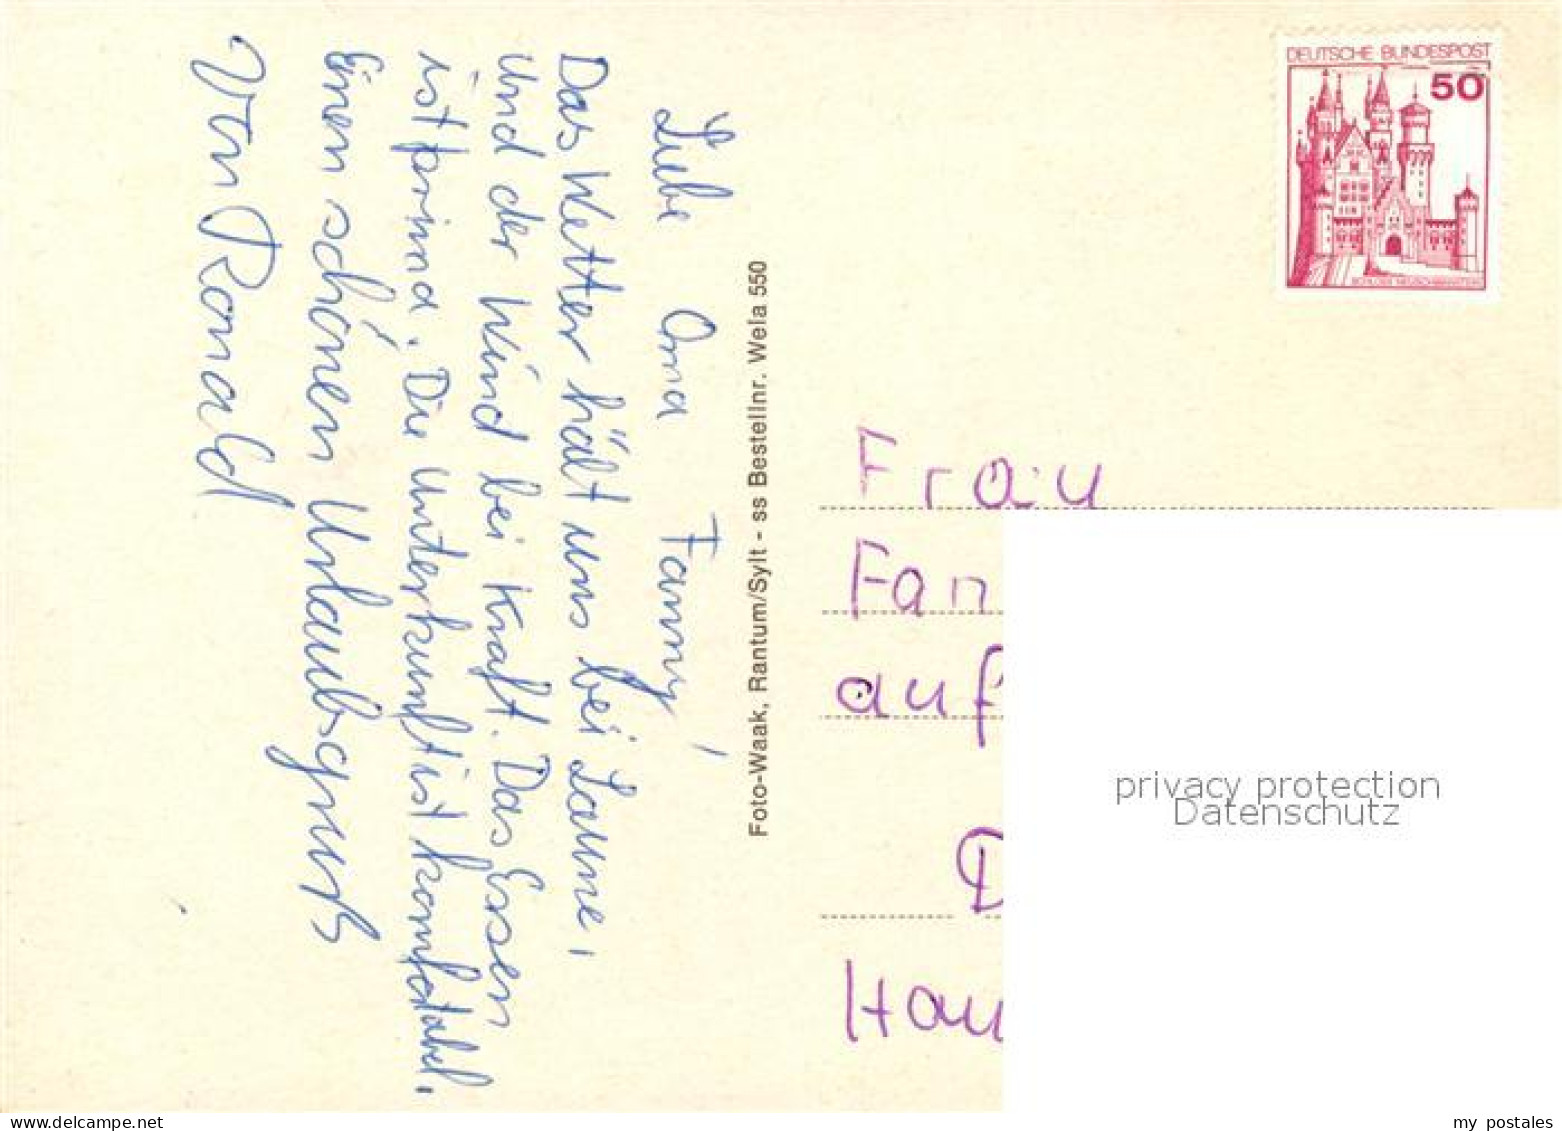 Liebe Oma Fanny,
Das Wetter hält uns bei Laune,
und der Wind bei Kraft. Das Essen
ist prima. Die Unterkunft ist komfotabel.
Einen schönen Urlaubsgruß
Von Ronald
Foto-Waak, Rantum/Sylt - ss Bestellnr. Wela 550
DEUTSCHE BUNDESPOST
50
SCHLOSS NEUSCHWANSTEIN
Frau
Fan
auf
D
Hau
privacy protection
Datenschutz
www.delcampe.net
my_postales